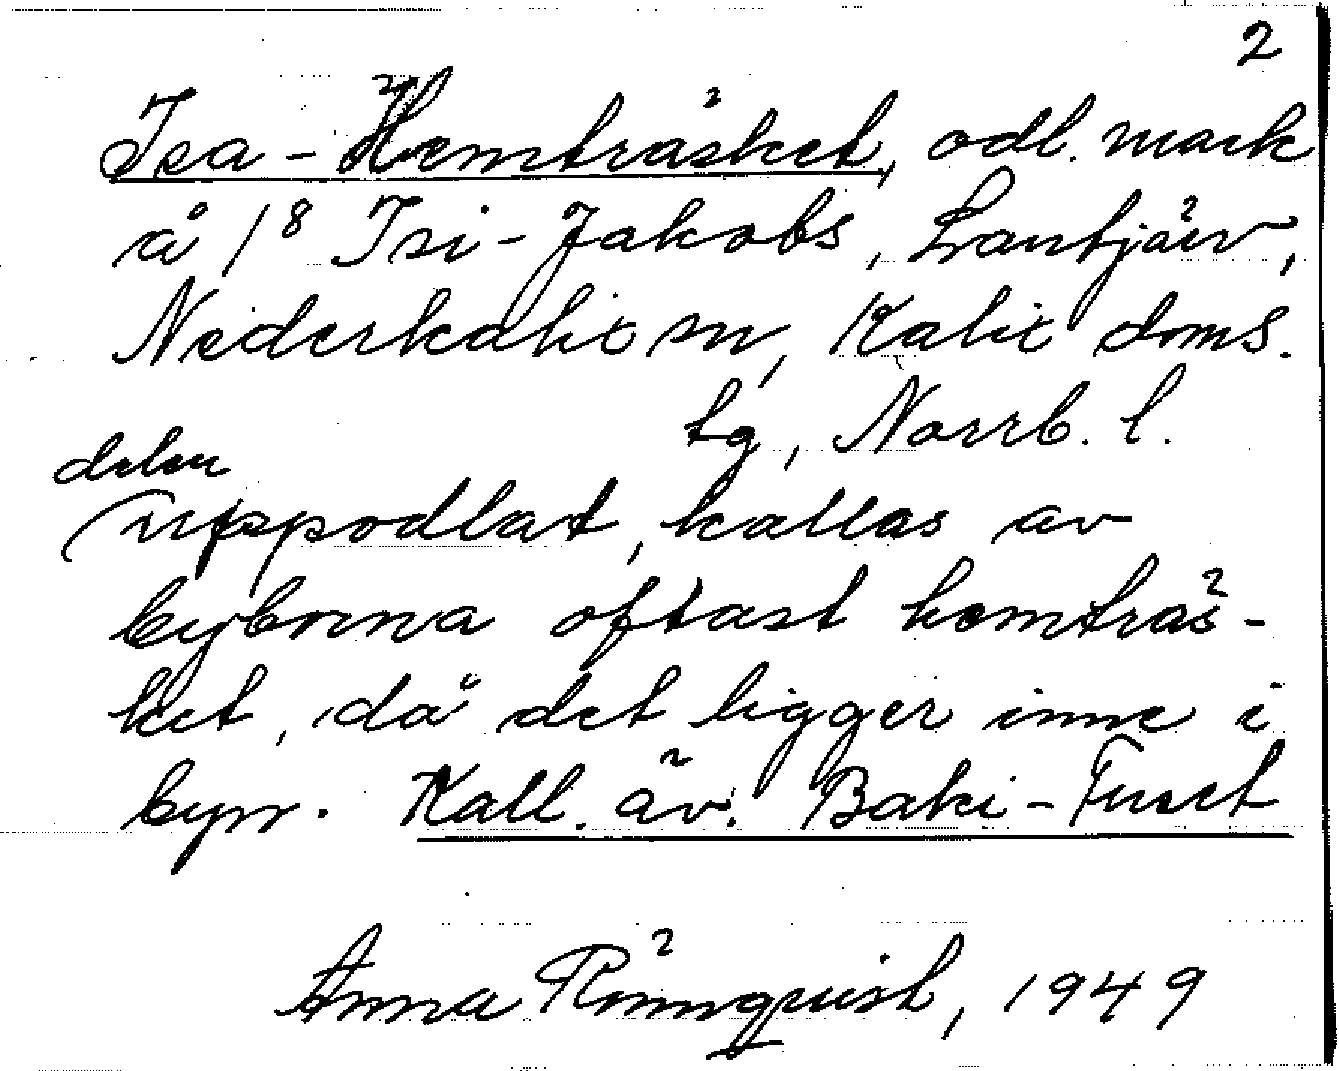 2
Isa-Hemträsket, odl. mark
å 1⁸ Isi-Jakobs, Lantjärv,
Nederkalix sn, Kalix doms.
tg, Norrb. l.
delen
uppodlat, kallas av
byborna oftast hemträs-
ket, då det ligger inne i
byn. Kall. äv. Baki-
Anna Rönnquist, 1949